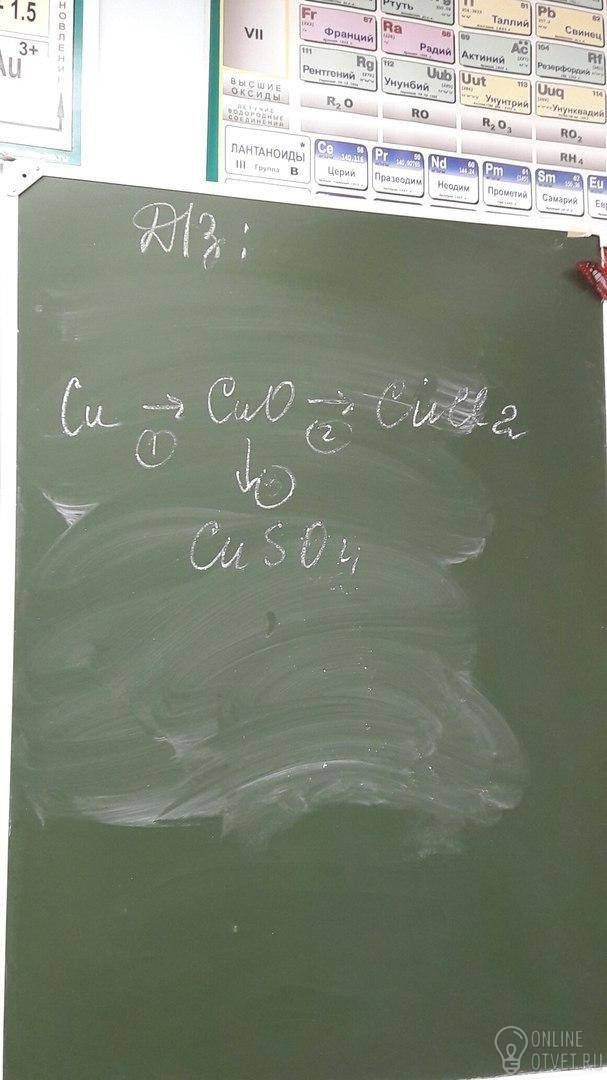 - 1.5
3+
Au
НОВЛЕНИЯ
VII
Ртуть
Таллий
Pb 82
Свинец
Fr 87
Франций
Ra 88
Радий
89 Ac
Актиний
104 Rf
Резерфордий
111 Rg
Рентгений
112 Uub
Унунбий
Uut 113
Унунтрий
Uuq 114
Унунквадий
ВЫСШИЕ
ОКСИДЫ
R2O
RO
R2O3
RO2
ЛЕТУЧИЕ
ВОДОРОДНЫЕ
СОЕДИНЕНИЯ
RH4
ЛАНТАНОИДЫ *
III Группа B
Ce 58
140,116
Церий
Pr 59
140,90765
Празеодим
Nd 60
144,24
Неодим
Pm 61
[145]
Прометий
Sm 62
150,36
Самарий
Eu
Евр
Д/З:
Cu → CuO → CuCl2
① ②
↓
CuSO4
ONLINE
OTVET.RU